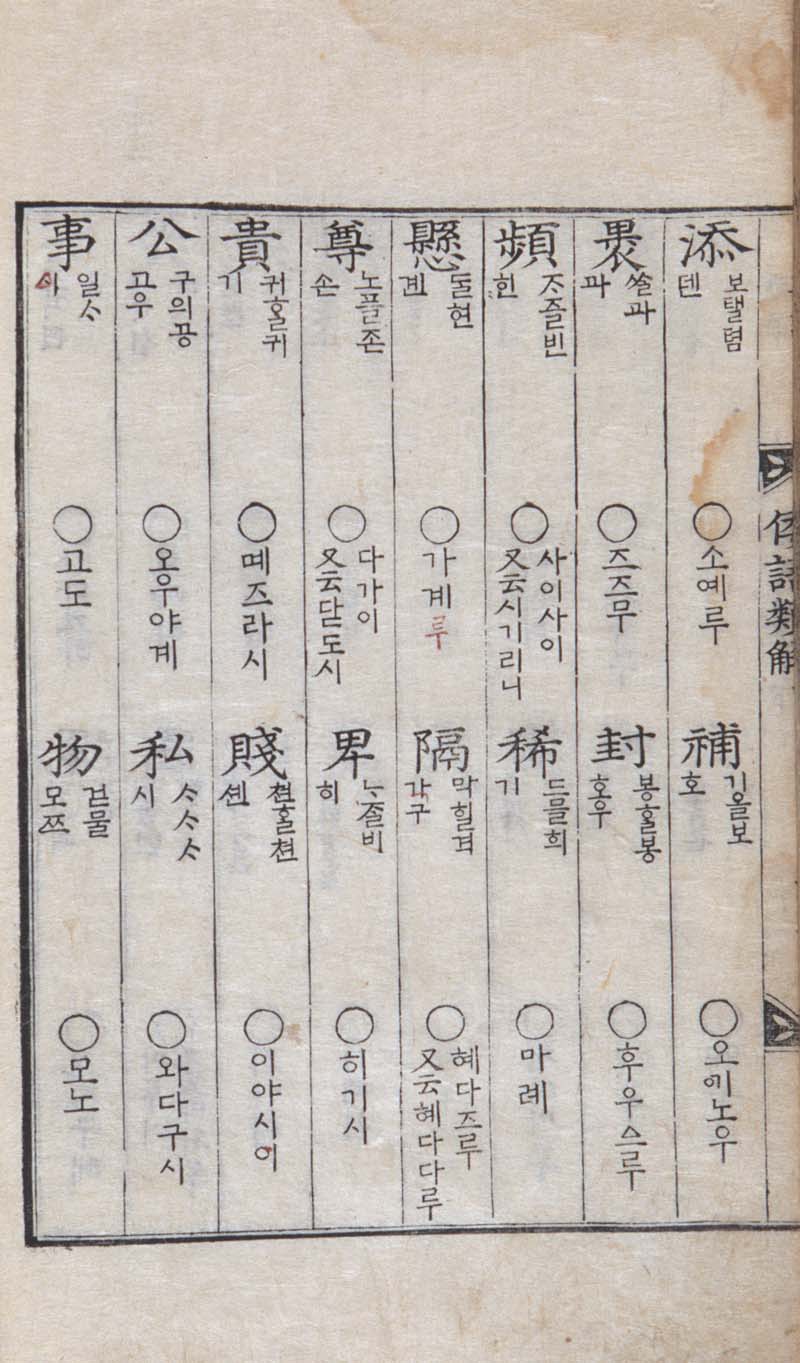 倭語類解
添 보탤텸 덴 ○소예루 補 기올보 호
褁 ○즈즈무 封 봉ᄒᆞᆯ봉 호우 ○후우스루
頻 ᄌᆞ즐빈 힌 ○사이사이 又云시기리니 稀 드믈희 기 ○마례
懸 ᄃᆞᆯ현 겐 ○가계루 隔 막힐격 각구 ○혜다즈루 又云혜다다루
尊 노플존 손 ○다가이 又云닫도시 卑 ᄂᆞ즐비 히 ○히기시
貴 귀ᄒᆞᆯ귀 기 ○몌즈라시 賤 쳔ᄒᆞᆯ쳔 션 ○이야시이
公 구의공 고우 ○오우야계 私 ᄉᆞᄉᆞᄉᆞ 시 ○와다구시
事 일ᄉᆞ 시 ○고도 物 걷물 모쯔 ○모노